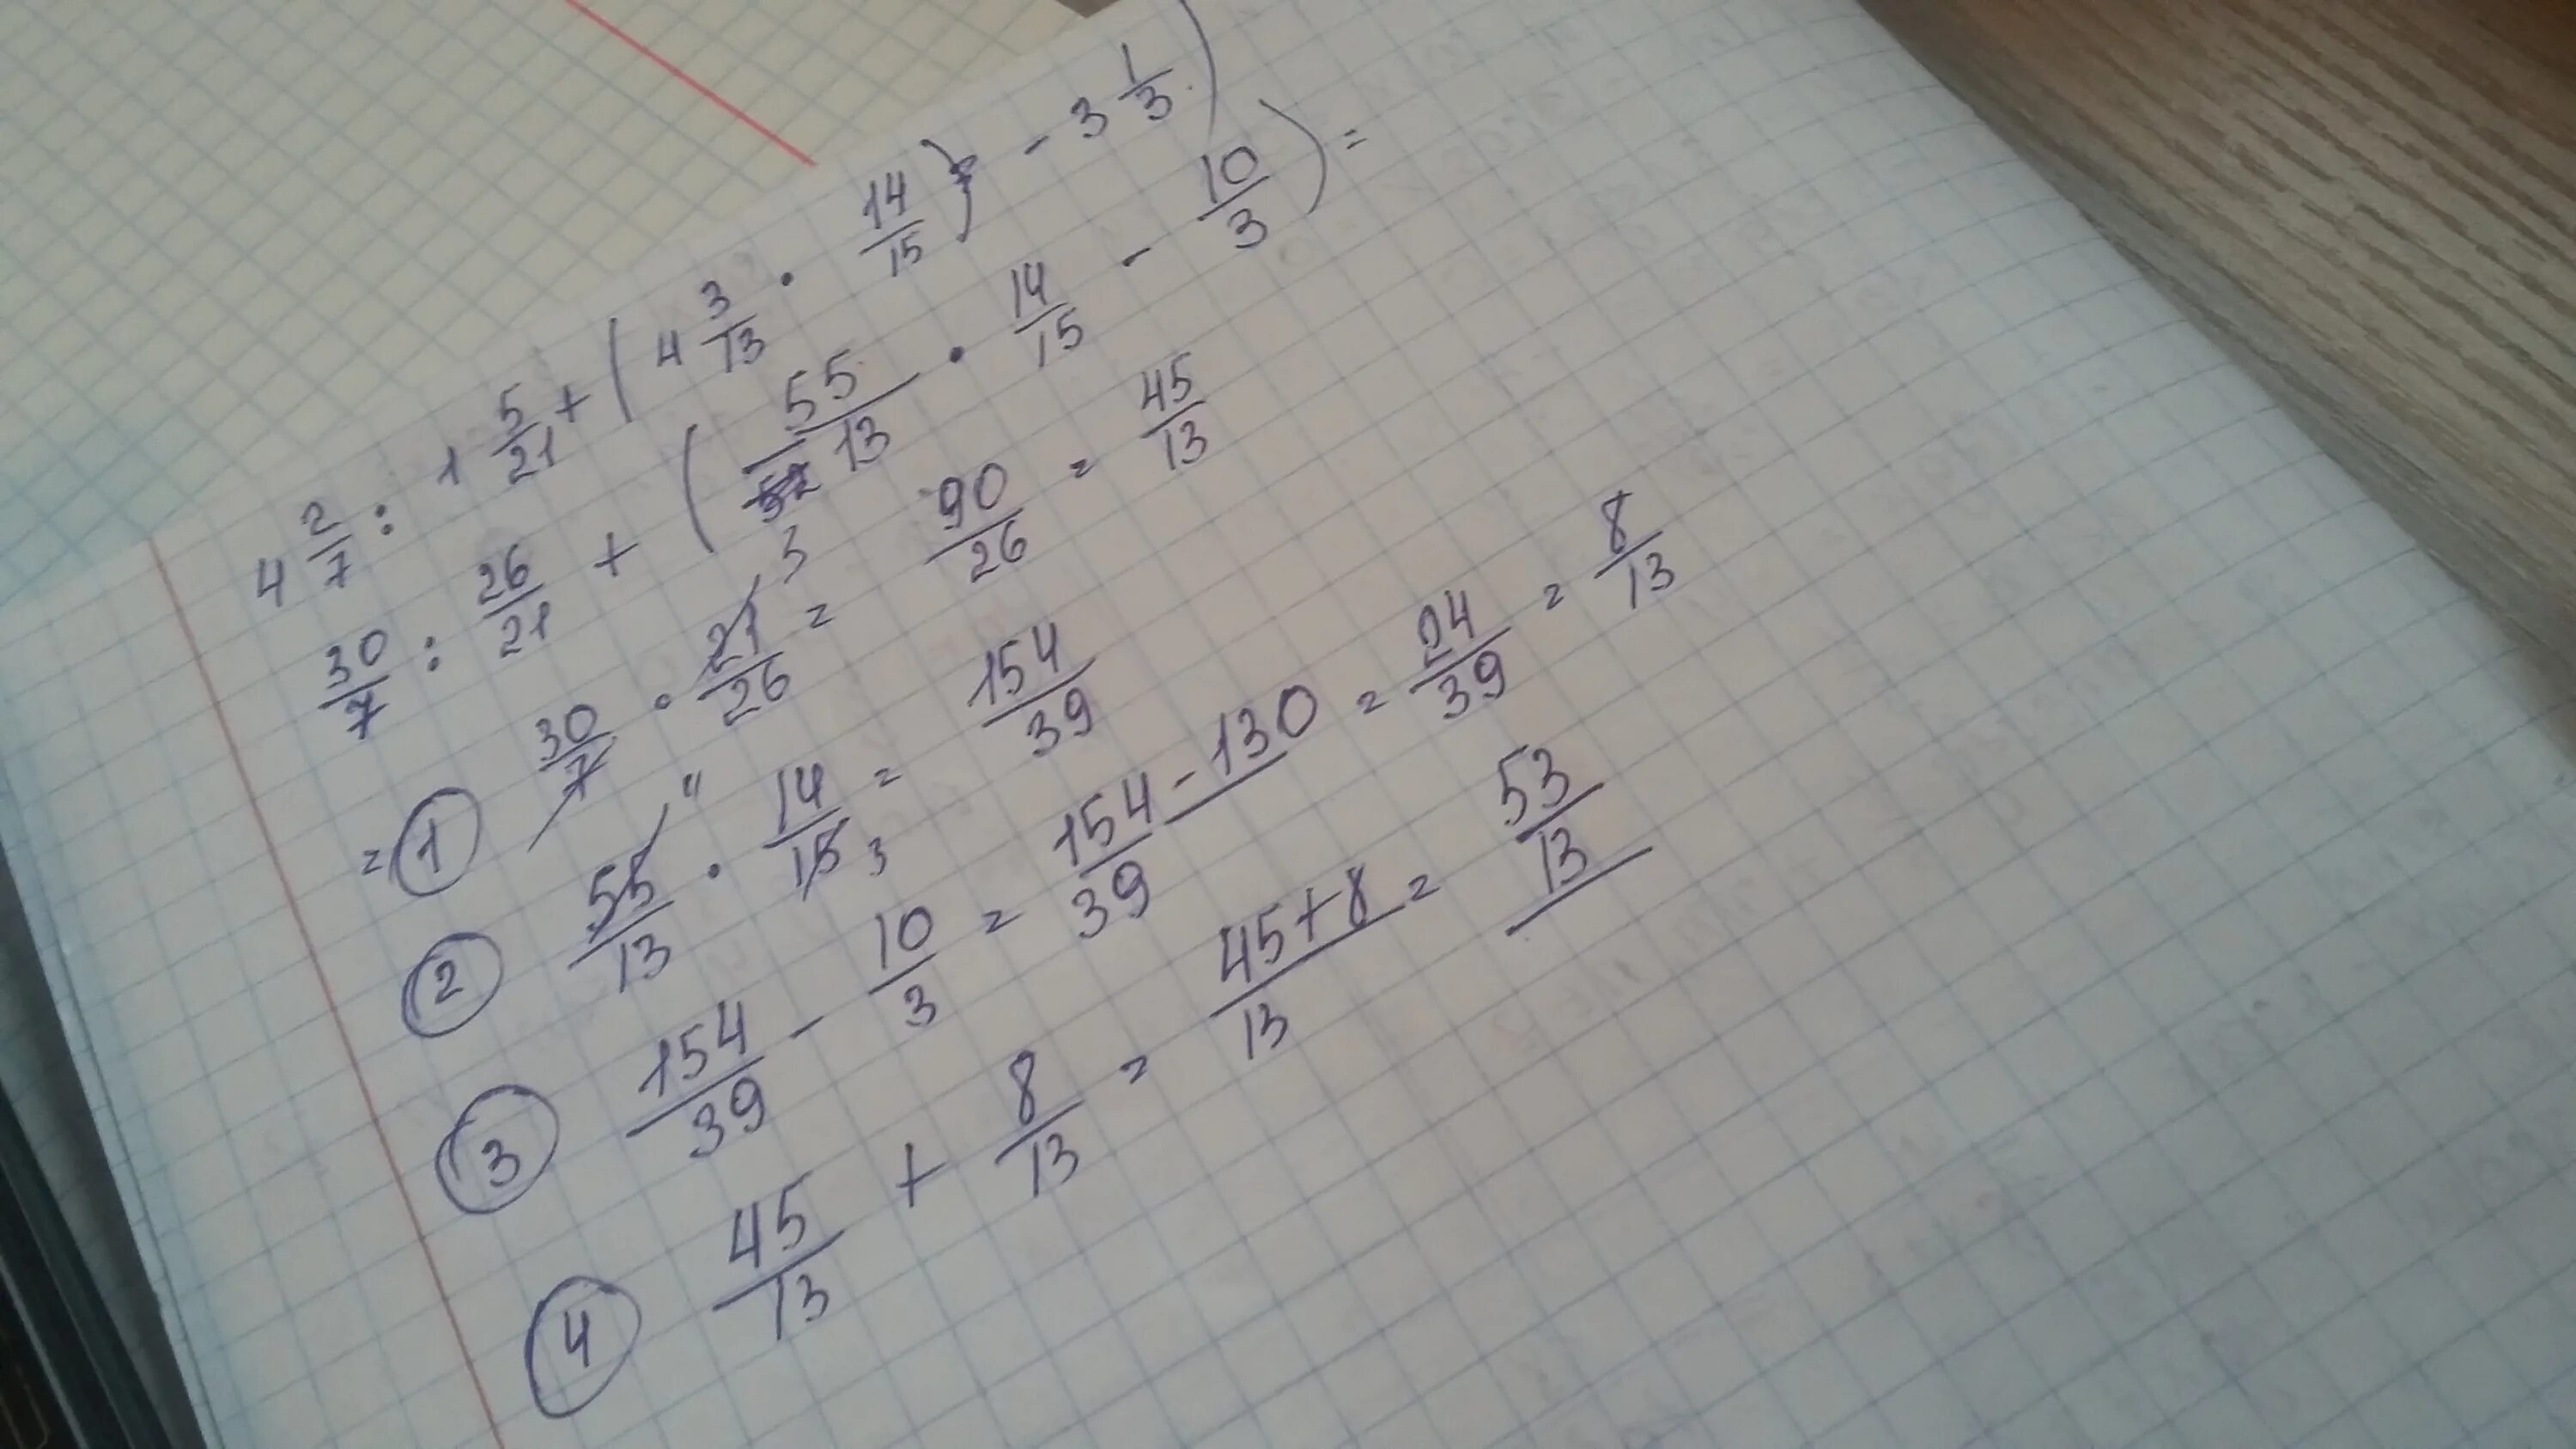 4 2/7 : 1 5/21 + (4 3/13 · 14/15) - 3 1/3)
30/7 : 26/21 + (55/13 · 14/15 - 10/3) =
= 1 30/7 · 21/26 3 = 90/26 = 45/13
2 55/13 11 · 14/15 3 = 154/39
3 154/39 - 10/3 = 154-130/39 = 24/39 = 8/13
4 45/13 + 8/13 = 45+8/13 = 53/13